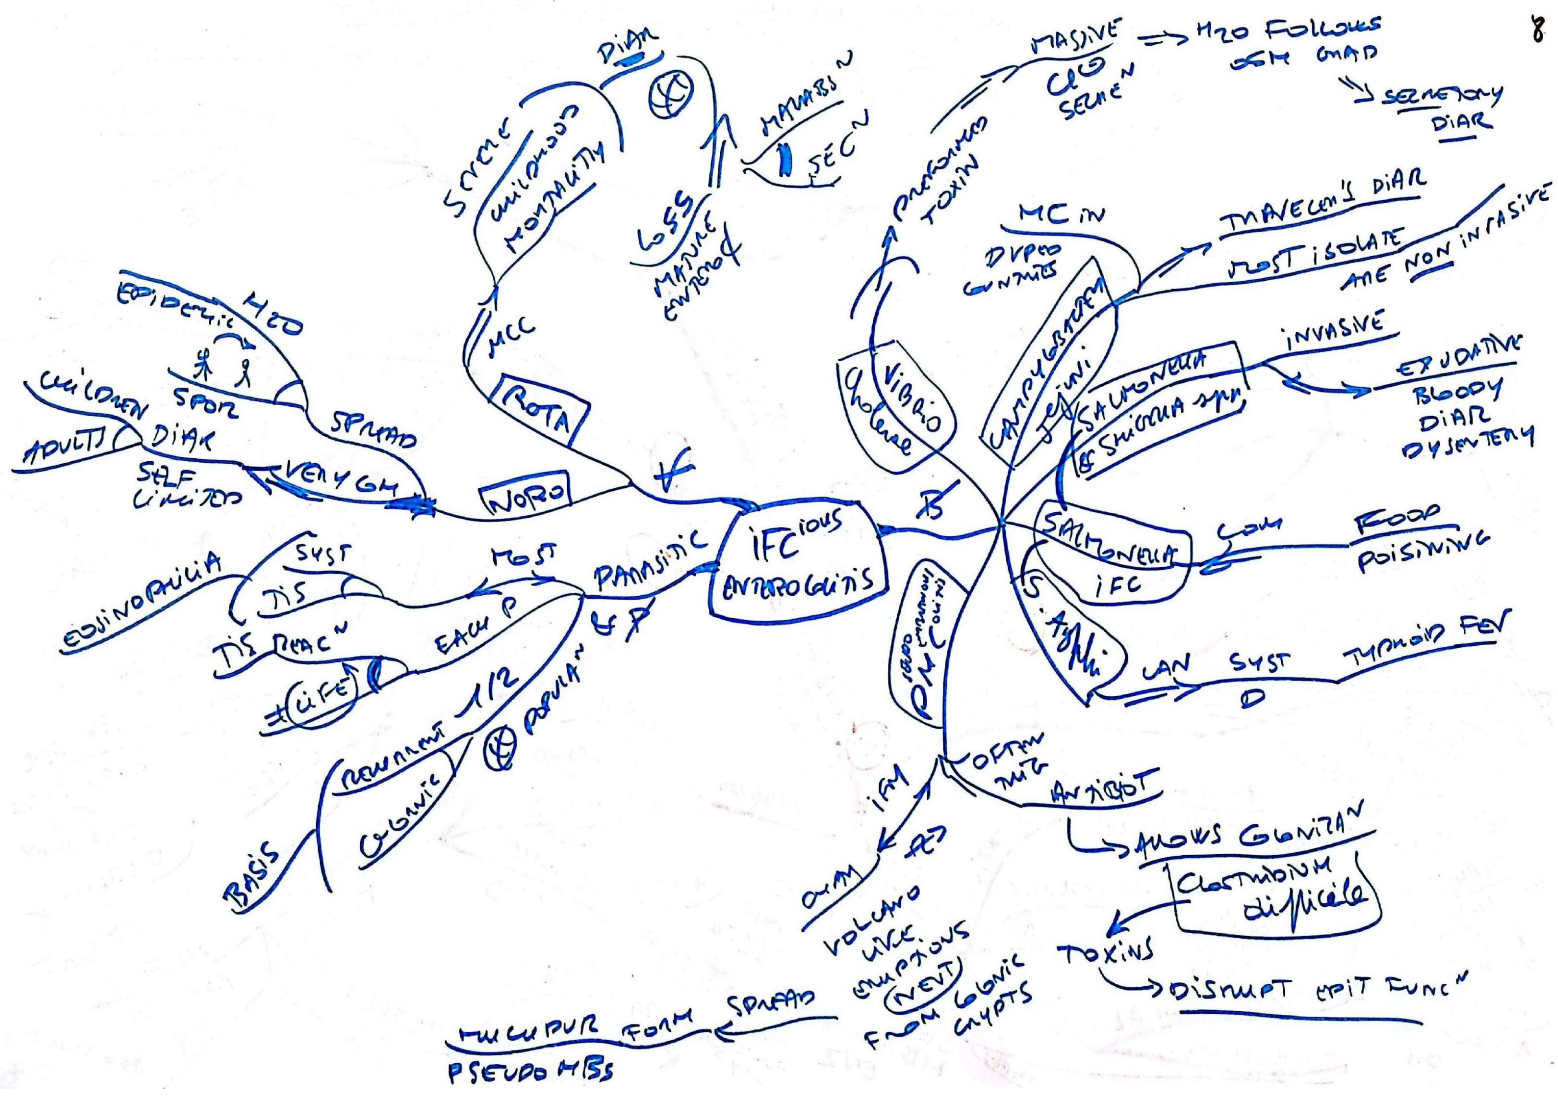 8
iFC IOUS
ENTEROCOLITIS
V
ROTA
MCC
SEVERE
CHILDHOOD
MORTALITY
DiAR
LOSS
MATURE
MALABS N
SEC N
NORO
VERY COM
SPREAD
H2O
EPIDEMIC
SPOR
DIAR
SELF
LIMITED
CHILDREN
ADULTS
PARASITIC
& P
MOST
SYST
TiS
EOSINOPHILIA
EACH P
TiS REAC N
≠ LiFE
1/2
POPULA N
RECURRENT
CHRONIC
BASIS
B
ViBRiO
Cholerae
PREFORMED
TOXIN
MASSIVE
SECRE N
H2O FOLLOWS
OSM GRAD
SECRETORY
DiAR
CAMPYLOBACTER
Jejuni
MC iN
DVPED
COUNTRIES
TRAVELER'S DiAR
MOST iSOLATE
ARE NON INVASIVE
SALMONELLA
& SHIGELLA spp
iNVASiVE
EXUDATIVE
BLOODY
DiAR
DYSENTERY
SALMONELLA
iFC
COM
FOOD
POISINING
S. typhi
CAN SYST
D
TYPHOID FEV
PSEUDO MEMBRANOUS
PM COLITIS
OFTEN
TRIG
ANTIBIOT
ALLOWS COLONIZA N
Clostridium
difficile
TOXINS
DISRUPT EPIT FUNC N
iFM
CHAR
VOLCANO
LIKE
ERUPTIONS
NEUT
FROM COLONIC
CRYPTS
SPREAD
FORM
MUCUPUR
PSEUDO MBs